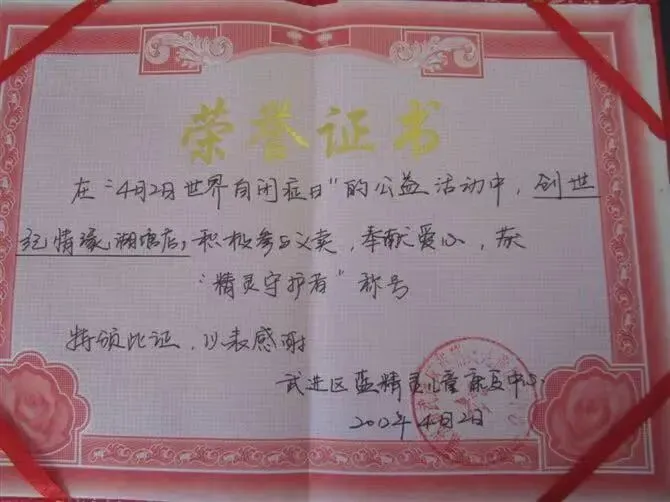 荣誉证书
在“4月2日世界自闭症日”的公益活动中，创世
纪情缘湖塘店，积极参与义卖，奉献爱心，获
“精灵守护者”称号
特颁此证，以表感谢
武进区蓝精灵儿童康复中心
2012年4月2日